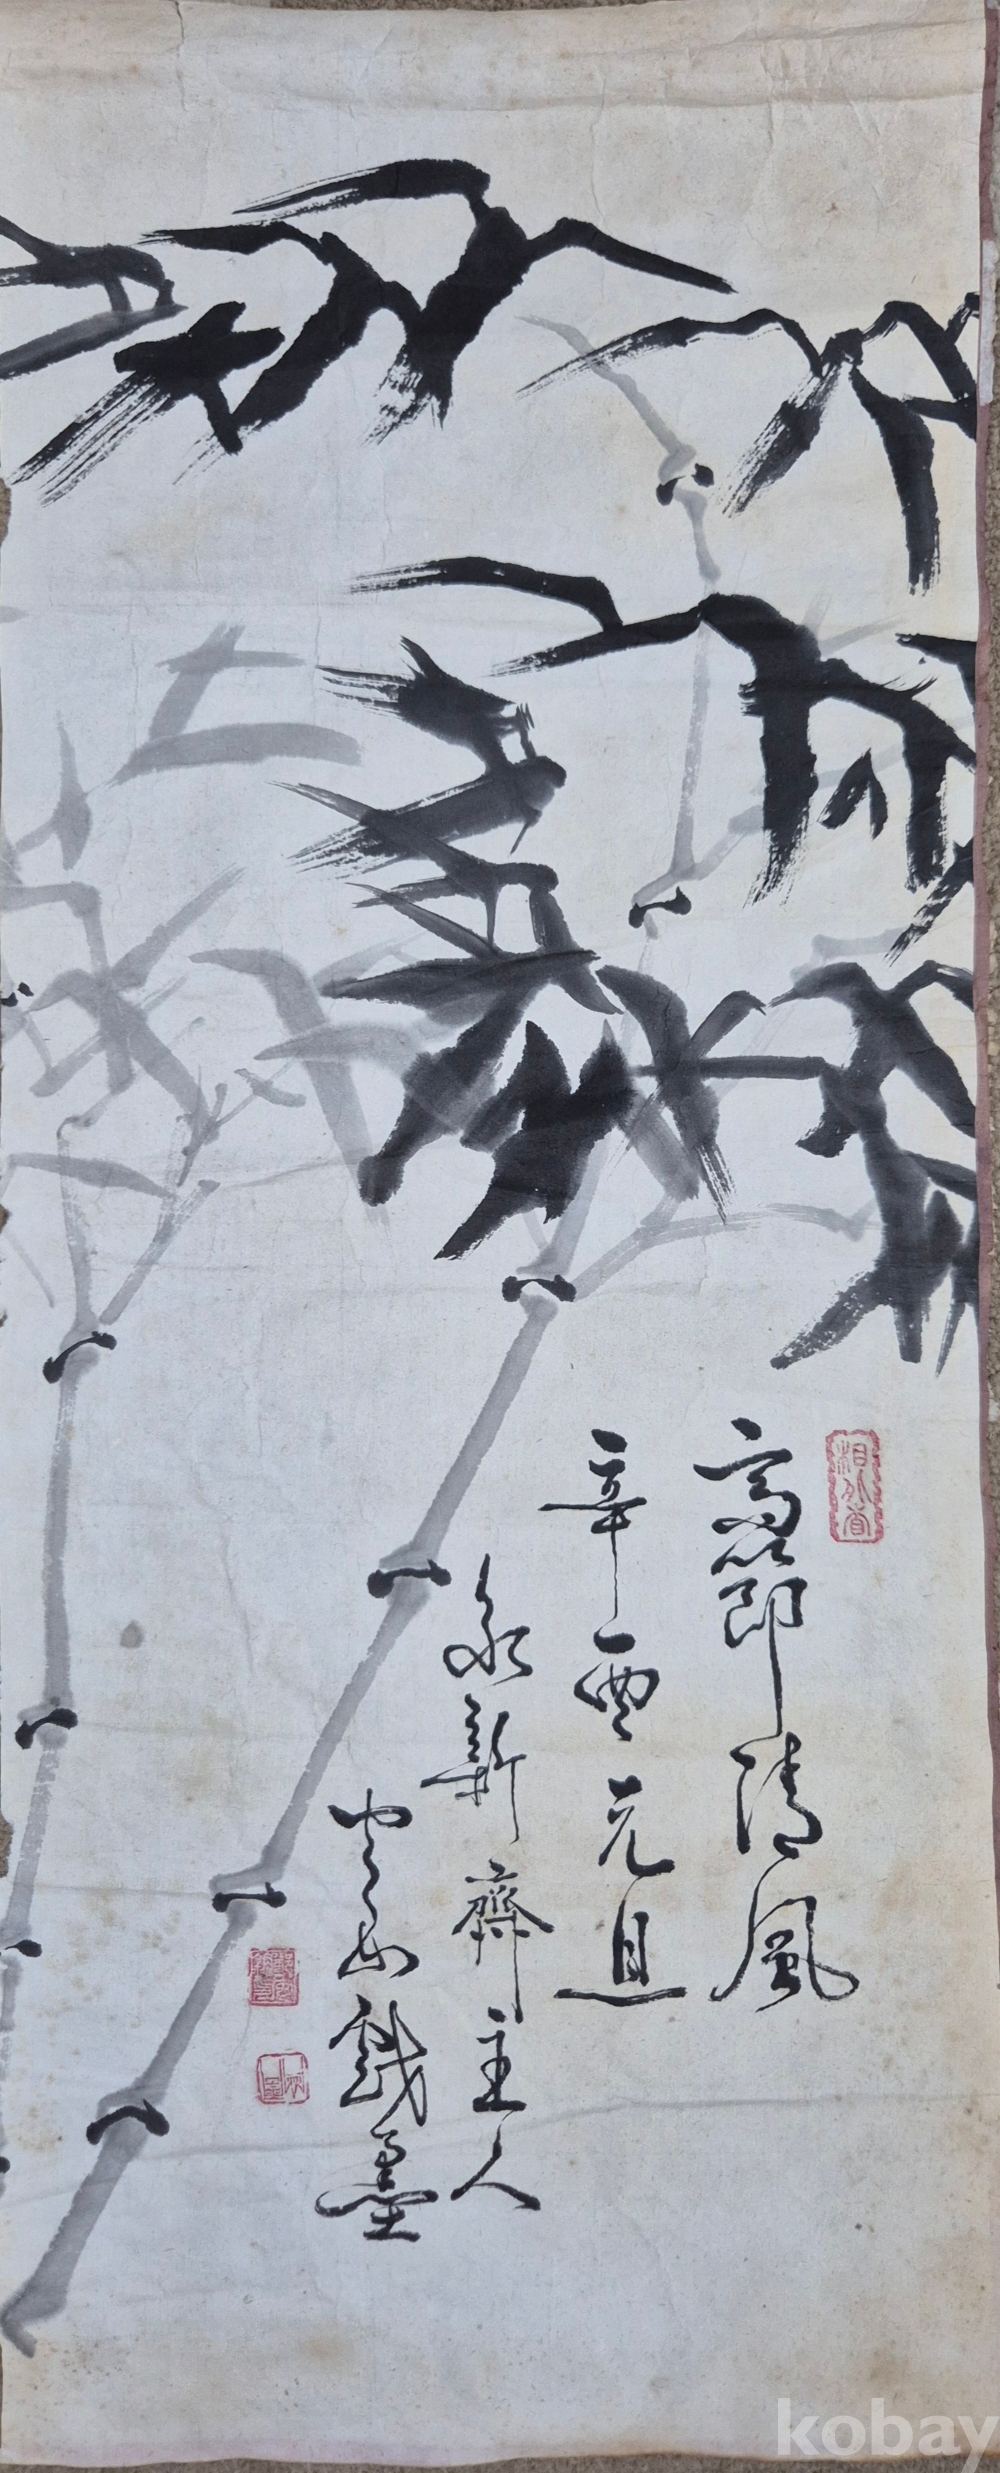 高節清風
辛酉元旦
永新齋主人
戲墨
kobay